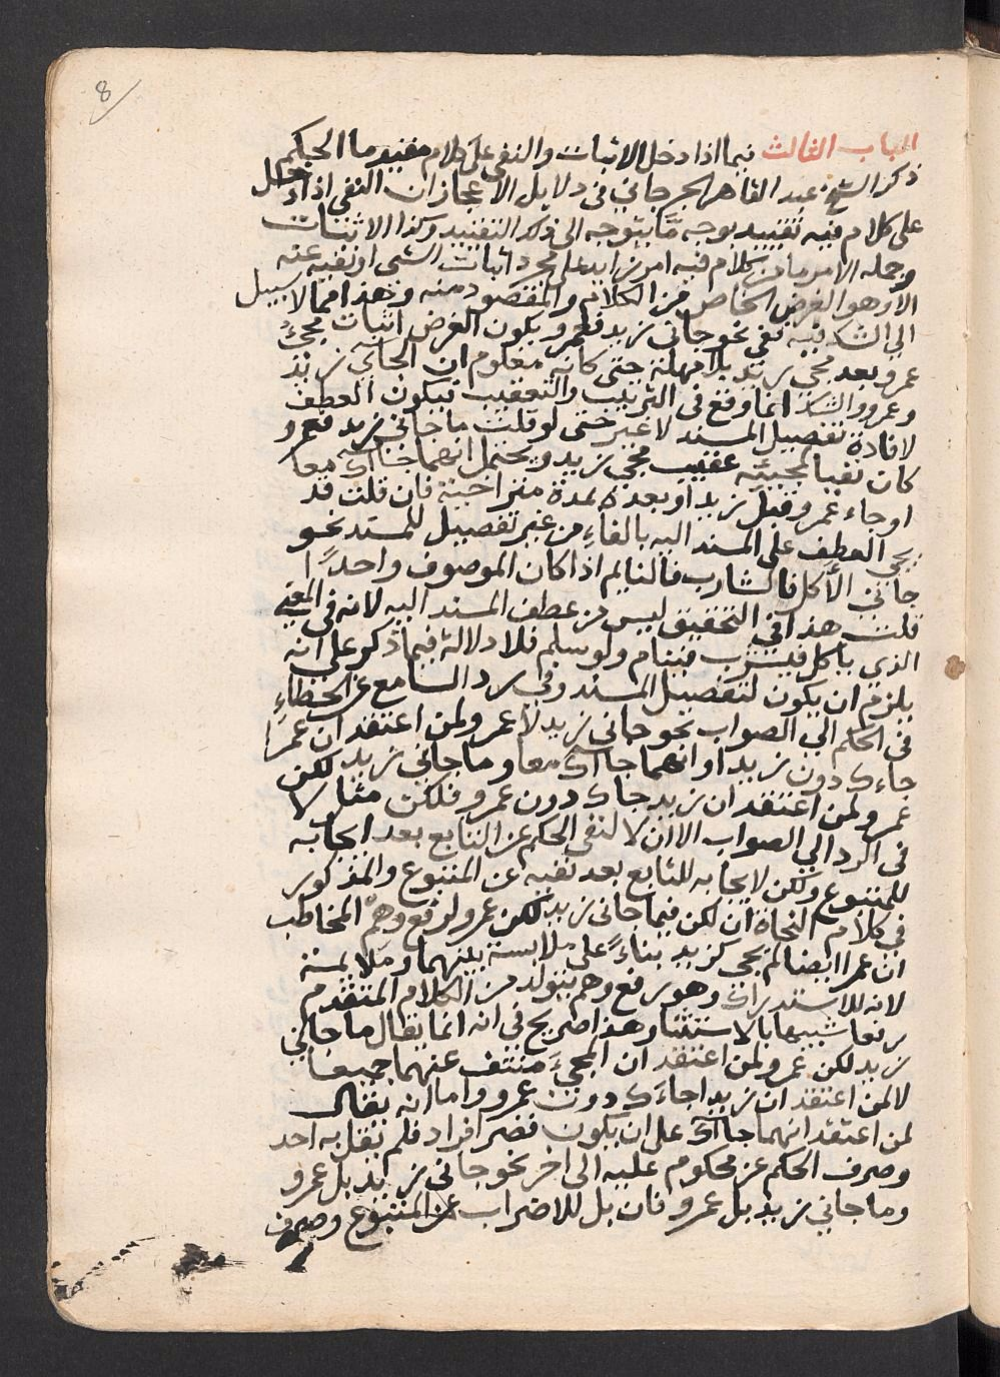 8
الباب الثالث فيما اذا دخل الاثبات والنفي على كلام مفيد ما الحكم
ذكر الشيخ عبد القاهر الجرجاني في دلايل الاعجاز ان النفي اذا دخل
على كلام فيه تقييد بوجه مّا يتوجه الى ذلك التقييد وكذا الاثبات
وجمله الامر ما من كلام فيه امر زايد على مجرد اثبات الشي او نفيه عنه
الا وهو الغرض الخاص من الكلام والمقصود منه وهذا مما لا سبيل
الى الشك فيه ففي نحو جاني زيد فعمرو يكون الغرض اثبات مجئ
عمرو بعد مجي زيد بلا مهلة حتى كانه معلوم ان الجائي زيد
وعمرو والشك انما وقع في الترتيب والتعقيب فيكون العطف
لافادة تفصيل المسند لا غير حتى لو قلت ما جاني زيد فعمرو
كان نفيا لمجيئه عقيب مجي زيد ويحتمل انهما جااك معا
او جاء عمرو قبل زيد او بعده بمدة متراخية فان قلت قد
يجي العطف على المسند اليه بالفاء من غير تفصيل للمسند نحو
جاني الأكل فالشارب فالنايم اذا كان الموصوف واحدًا
قلت هذا في التحقيق ليس من عطف المسند اليه لانه في المعنى
الذي ياكل فيشرب فينام ولو سلم فلا دلالة فيما ذكر على انه
يلزم ان يكون لتفصيل المسند وفي رد السامع عن الخطاء
في الحكم الى الصواب نحو جاني زيد لا عمرو لمن اعتقد ان عمرا
جاءك دون زيد او انهما جااك معا وما جاني زيد لكن
عمرو لمن اعتقد ان زيد جاك دون عمرو فلكن مثل لا
في الرد الى الصواب الا ان لا لنفي الحكم عن التابع بعد ايجابه
للمتبوع ولكن لايجابه للتابع بعد نفيه عن المتبوع والمذكور
في كلام النحاة ان لكن فيما جاني زيد لكن عمرو لرفع وهم المخاطب
ان عمرا ايضا لم يجي كزيد بناءً على ملابسة بينهما وملايمة
لانه للاستدراك وهو رفع وهم يتولد من الكلام المتقدم
رفعا شبيها بالاستثنا وهذا صريح في انه انما يقال ما جاني
زيد لكن عمرو لمن اعتقد ان المجيء منتف عنهما جميعا
لا لمن اعتقد ان زيدا جاءك دون عمرو واما انه يقال
لمن اعتقد انهما جااك على ان يكون قصر افراد فلم يقل به احد
وصرف الحكم عن محكوم عليه الى اخر نحو جاني زيد بل عمرو
وما جاني زيد بل عمرو فان بل للاضراب عن المتبوع وصرف